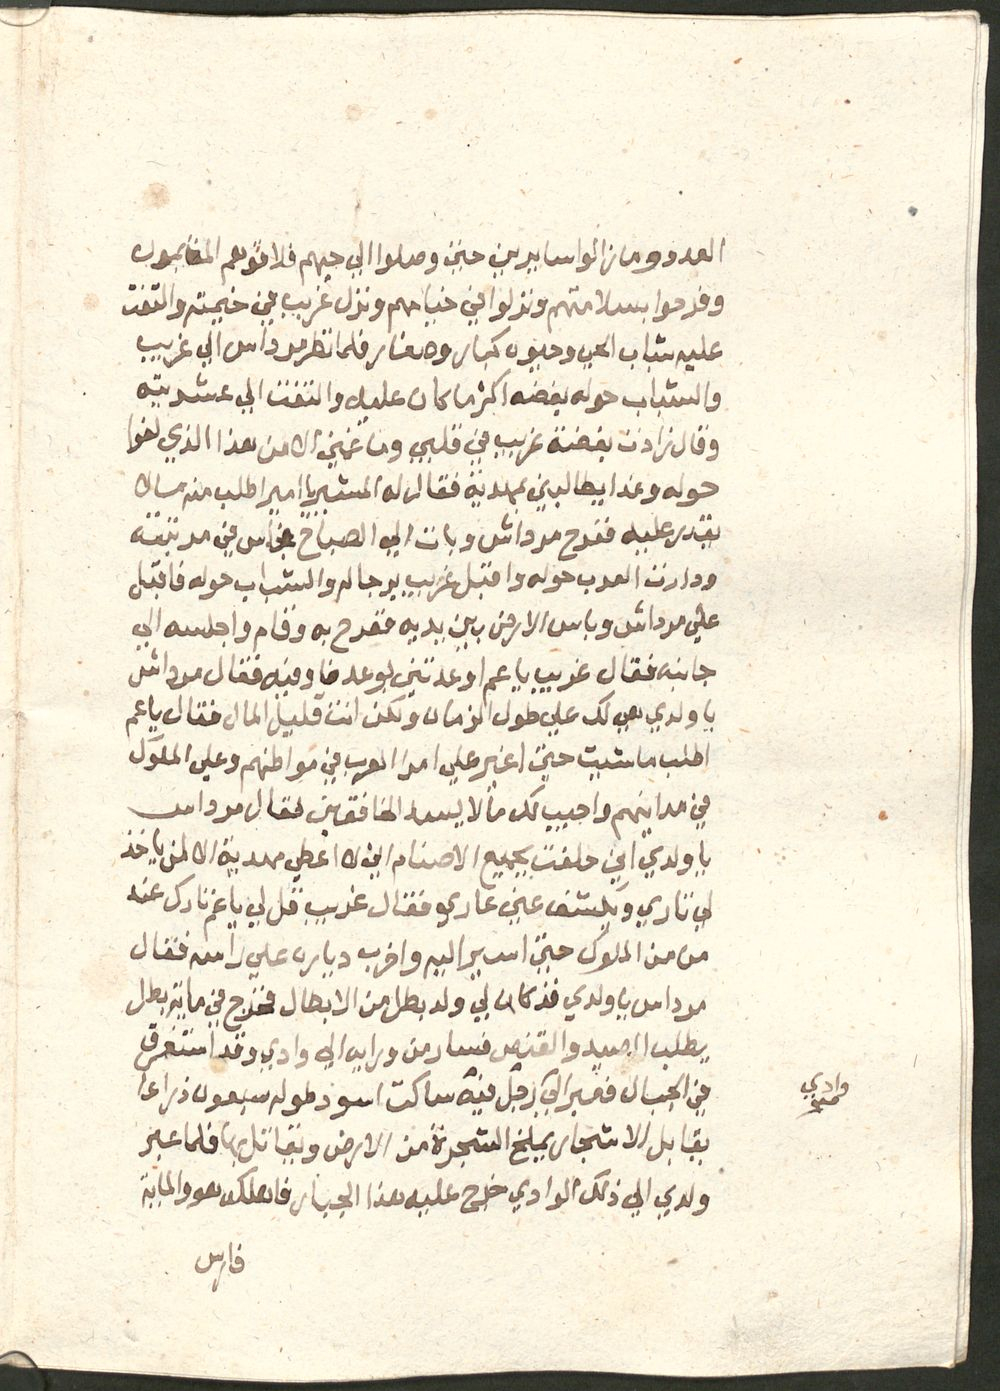 العدو وما زالوا سايرين حتى وصلوا الي حيهم فلاقوهم المقيمون
وفرحوا بسلامتهم ونزلوا في خيامهم ونزل غريب في خيمته والتفت
عليه شباب الحي وحبوه كبار وصغار فلما نظر مرداس الي غريب
والشباب حوله بغضه اكثر ما كان عليه والتفت الي عشريته
وقال زادت بغضة غريب في قلبي وما غمني الا من هذا الذي لفوا
حوله وغدا يطالبني بمهدية فقال له المشير يا امير اطلب منه ما لا
يقدر عليه ففرح مرداس وبات الي الصباح جلس في مرتبته
ودارت العرب حوله واقبل غريب برجاله والشباب حوله فاقبل
علي مرداس وباس الارض بين يديه ففرح به وقام واجلسه الي
جانبه فقال غريب يا عم اوعدتني بوعد فاوفيه فقال مرداس
يا ولدي هي لك علي طول الزمان ولكن انت قليل المال فقال يا عم
اطلب ما شيت حتى اغير علي امرا العرب في مواطنهم وعلي الملوك
في مداينهم واجيب لك مالا يسد الخافقين فقال مرداس
يا ولدي اني حلفت بجميع الاصنام اني لا اعطي مهدية الا لمن ياخذ
لي تاري ويكشف عني عاري فقال غريب قل لي يا عم تارك عند
من من الملوك حتى اسير اليه واخرب دياره علي راسه فقال
مرداس يا ولدي قد كان لي ولد بطل من الابطال فخرج في ماية بطل
يطلب الصيد والقنص فسار من وادي الي وادي وقد استغرق
في الجبال فعبر الي رجل فيه ساكت اسود طوله سبعون ذراعا
يقابل الاشجار يملخ الشجرة من الارض ويقاتل بها فلما عبر
ولدي الي ذلك الوادي خرج عليه هذا الجبار فاهلكه هو والماية
فارس
وادي